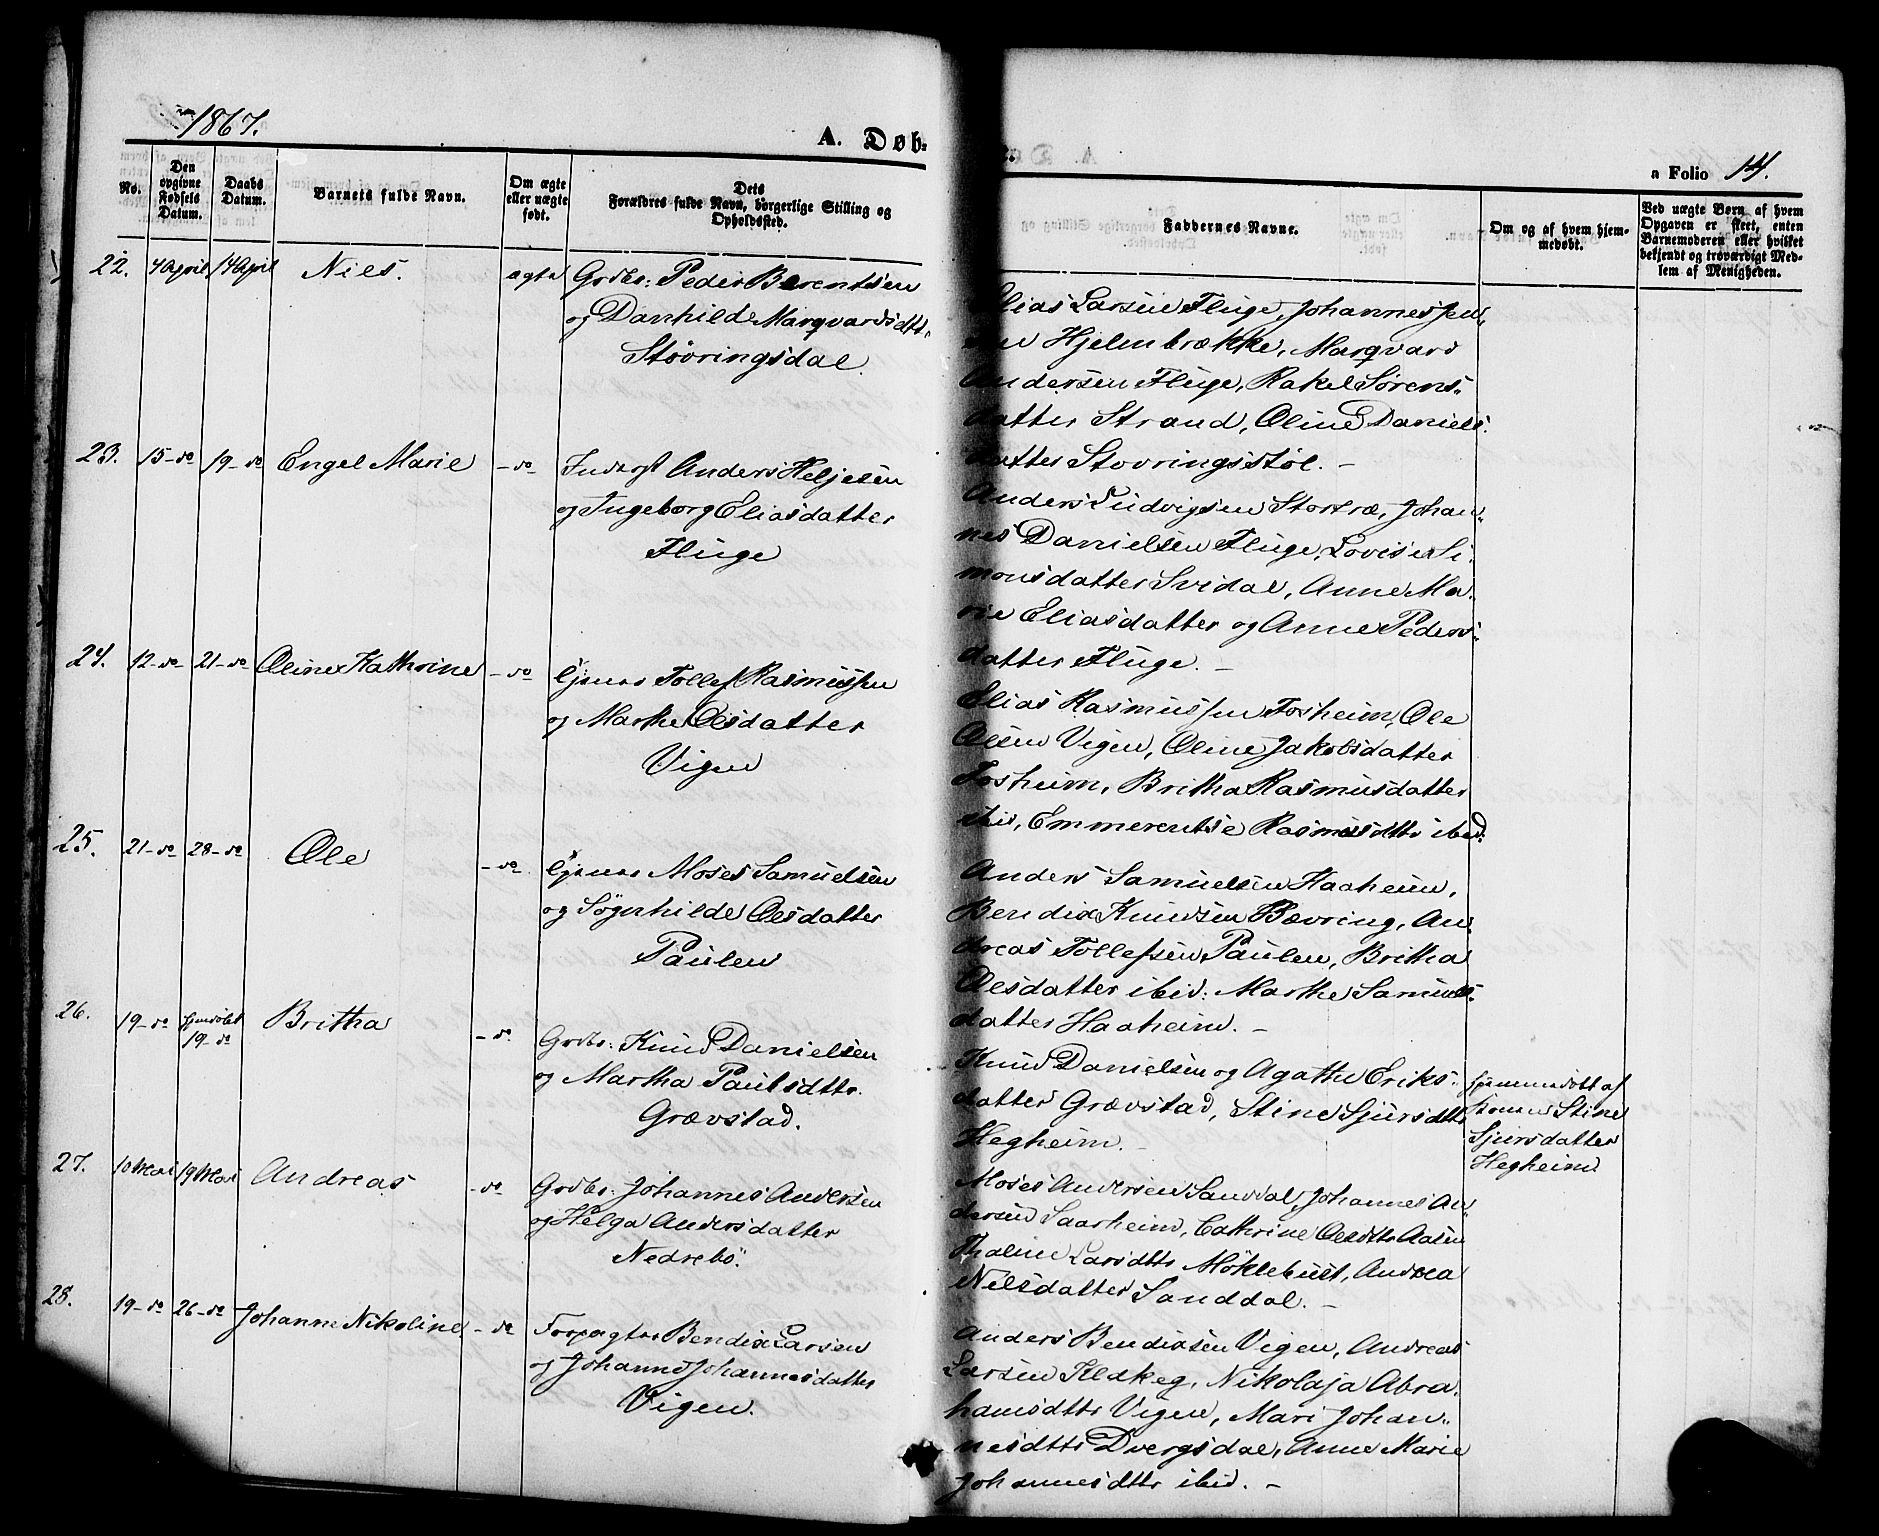 1867.
A. Døb-
a Folio 14.
No.
Den opgivne Fødsels Datum.
Daabs Datum.
Barnets fulde Navn.
Om ægte eller uægte født.
Dets Forældres fulde Navn, borgerlige Stilling og Opholdssted.
Faddernes Navne.
Om og af hvem hjem-
medøbt.
Ved uægte Børn af hvem
Opgaven er skeet, enten
Barnemoderen eller hvilket
bekjendt og troværdigt Med-
lem af Menigheden.
22. 4 April 14 April Niels. ægte Grdbr: Peder Berentsen
og Danhilde Marqvardsdtt.
Støvringsdal.
Elias Larsen Fluge, Johannes Jen-
sen Hjelmbrække, Marqvard
Andersen Fluge, Rakel Sørens-
datter Strand, Oline Daniels-
datter Støvringsstøl. -
23. 15-do 19-do Engel Marie -do Inderst Anders Heljesen
og Ingeborg Eliasdatter
Fluge
Anders Ludvigsen Stortræ, Johan-
nes Danielsen Fluge, Lovise Si-
monsdatter Svidal, Anne Ma-
rie Eliasdatter og Anne Peders-
datter Fluge. -
24. 12-do 21-do Oline Kathrine -do Gjsmd Tollef Rasmussen
og Marthe Olsdatter
Vigen
Elias Rasmussen Fosheim, Ole
Olsen Vigen, Oline Jakobsdatter
Fosheim, Britha Rasmusdatter
ibid, Emmerentse Rasmusdttr ibid.
25. 21-do 28-do Ole -do Gjsmd Moses Samuelsen
og Søgnhilde Olsdatter
Paulen
Anders Samuelsen Haaheim,
Bendix Knudsen Bævring, An-
dreas Tollefsen Paulen, Britha
Olsdatter ibid: Marthe Samuels-
datter Haaheim. -
26. 19-do hjemdøbt
19-do Britha -do Grdbr: Knud Danielsen
og Martha Paulsdttr.
Grævstad.
Knud Danielsen og Agathe Eriks-
datter Grævstad, Stine Sjursdttr
Hegheim. -
hjemmedøbt af
Konen Stine
Sjursdatter
Hegheim
27. 10 Mai 19 Mai Andreas -do Grdbr: Johannes Andersen
og Helga Andersdatter
Nedrebö.
Moses Andersen Sanddal, Johannes An-
dersen Saarheim, Cathrine Olsdttr Aasen
Thaline Larsdttr Möklebust, Andrea
Nilsdatter Sanddal. -
28. 19-do 26-do Johanne Nikoline -do Forpagter Bendix Larsen
og Johanne Johannesdatter
Vigen.
Anders Bendixsen Vigen, Andreas
Larsen Klakeg, Nikolaja Abra-
hamsdttr Vigen, Mari Johan-
nesdttr Dvergsdal, Anne Marie
Johannesdttr ibid. -